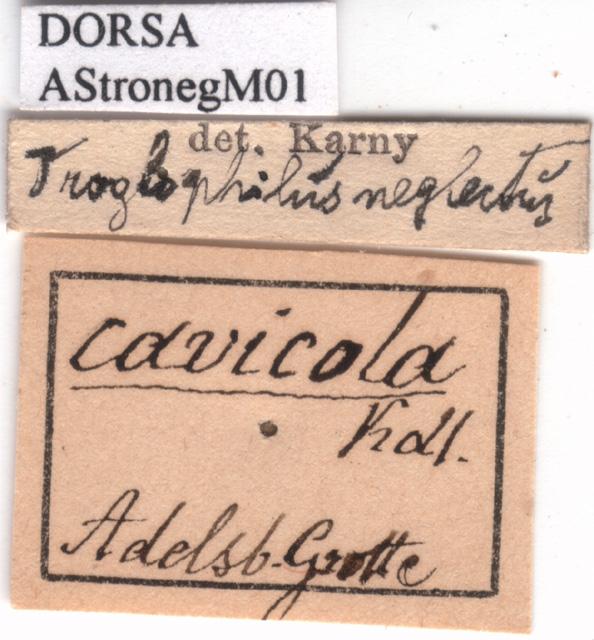 DORSA
AStronegM01
det. Karny
Troglophilus neglectus
cavicola
Kdl.
Adelsb. Grotte